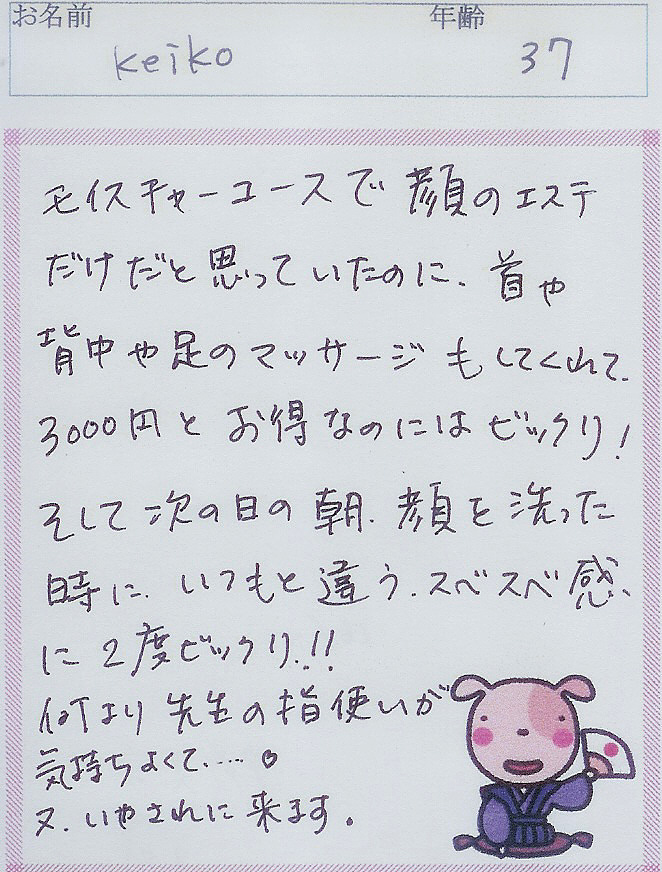 お名前 年齢
keiko 37
モイスチャーコースで顔のエステ
だけだと思っていたのに、首や
背中や足のマッサージもしてくれて、
3000円とお得なのにはビックリ!
そして次の日の朝、顔を洗った
時に、いつもと違う、スベスベ感、
に2度ビックリ!!
何より先生の指使いが
気持ちよくて、…。
又、いやされに来ます。